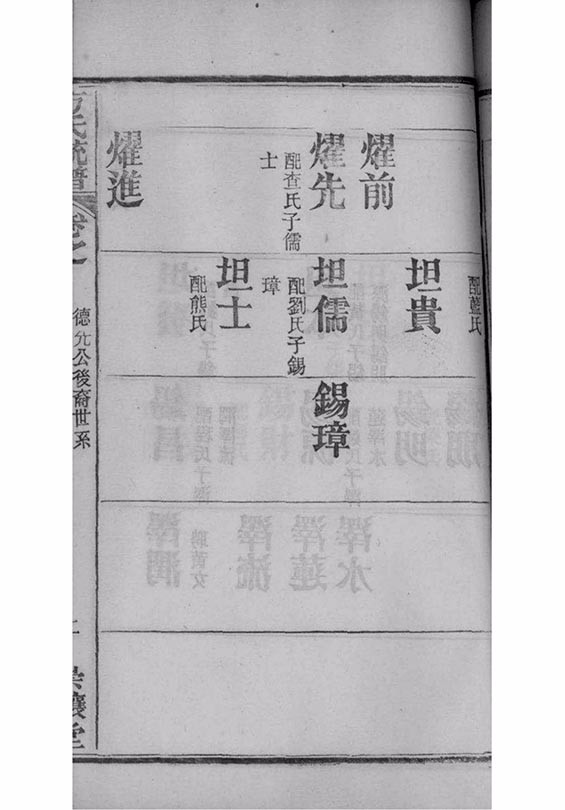 配藍氏
坦貴
燿前
燿先
配查氏子儒
士
坦儒
配劉氏子錫
璋
錫璋
坦士
配熊氏
燿進
氏統譜
卷之
德允公後裔世系
堂